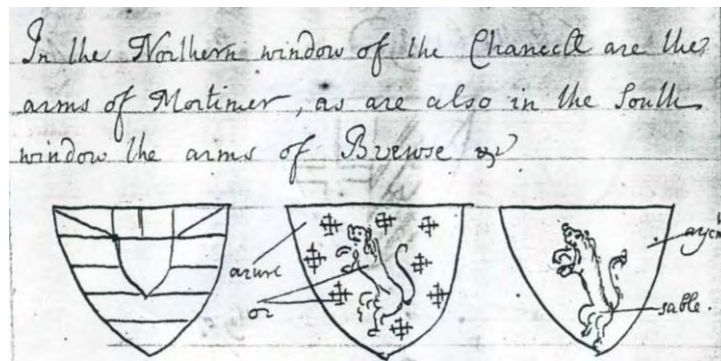 In the Northern window of the Chancell are the
arms of Mortimer, as are also in the South
window the arms of Brewse &c
azure
or
sable